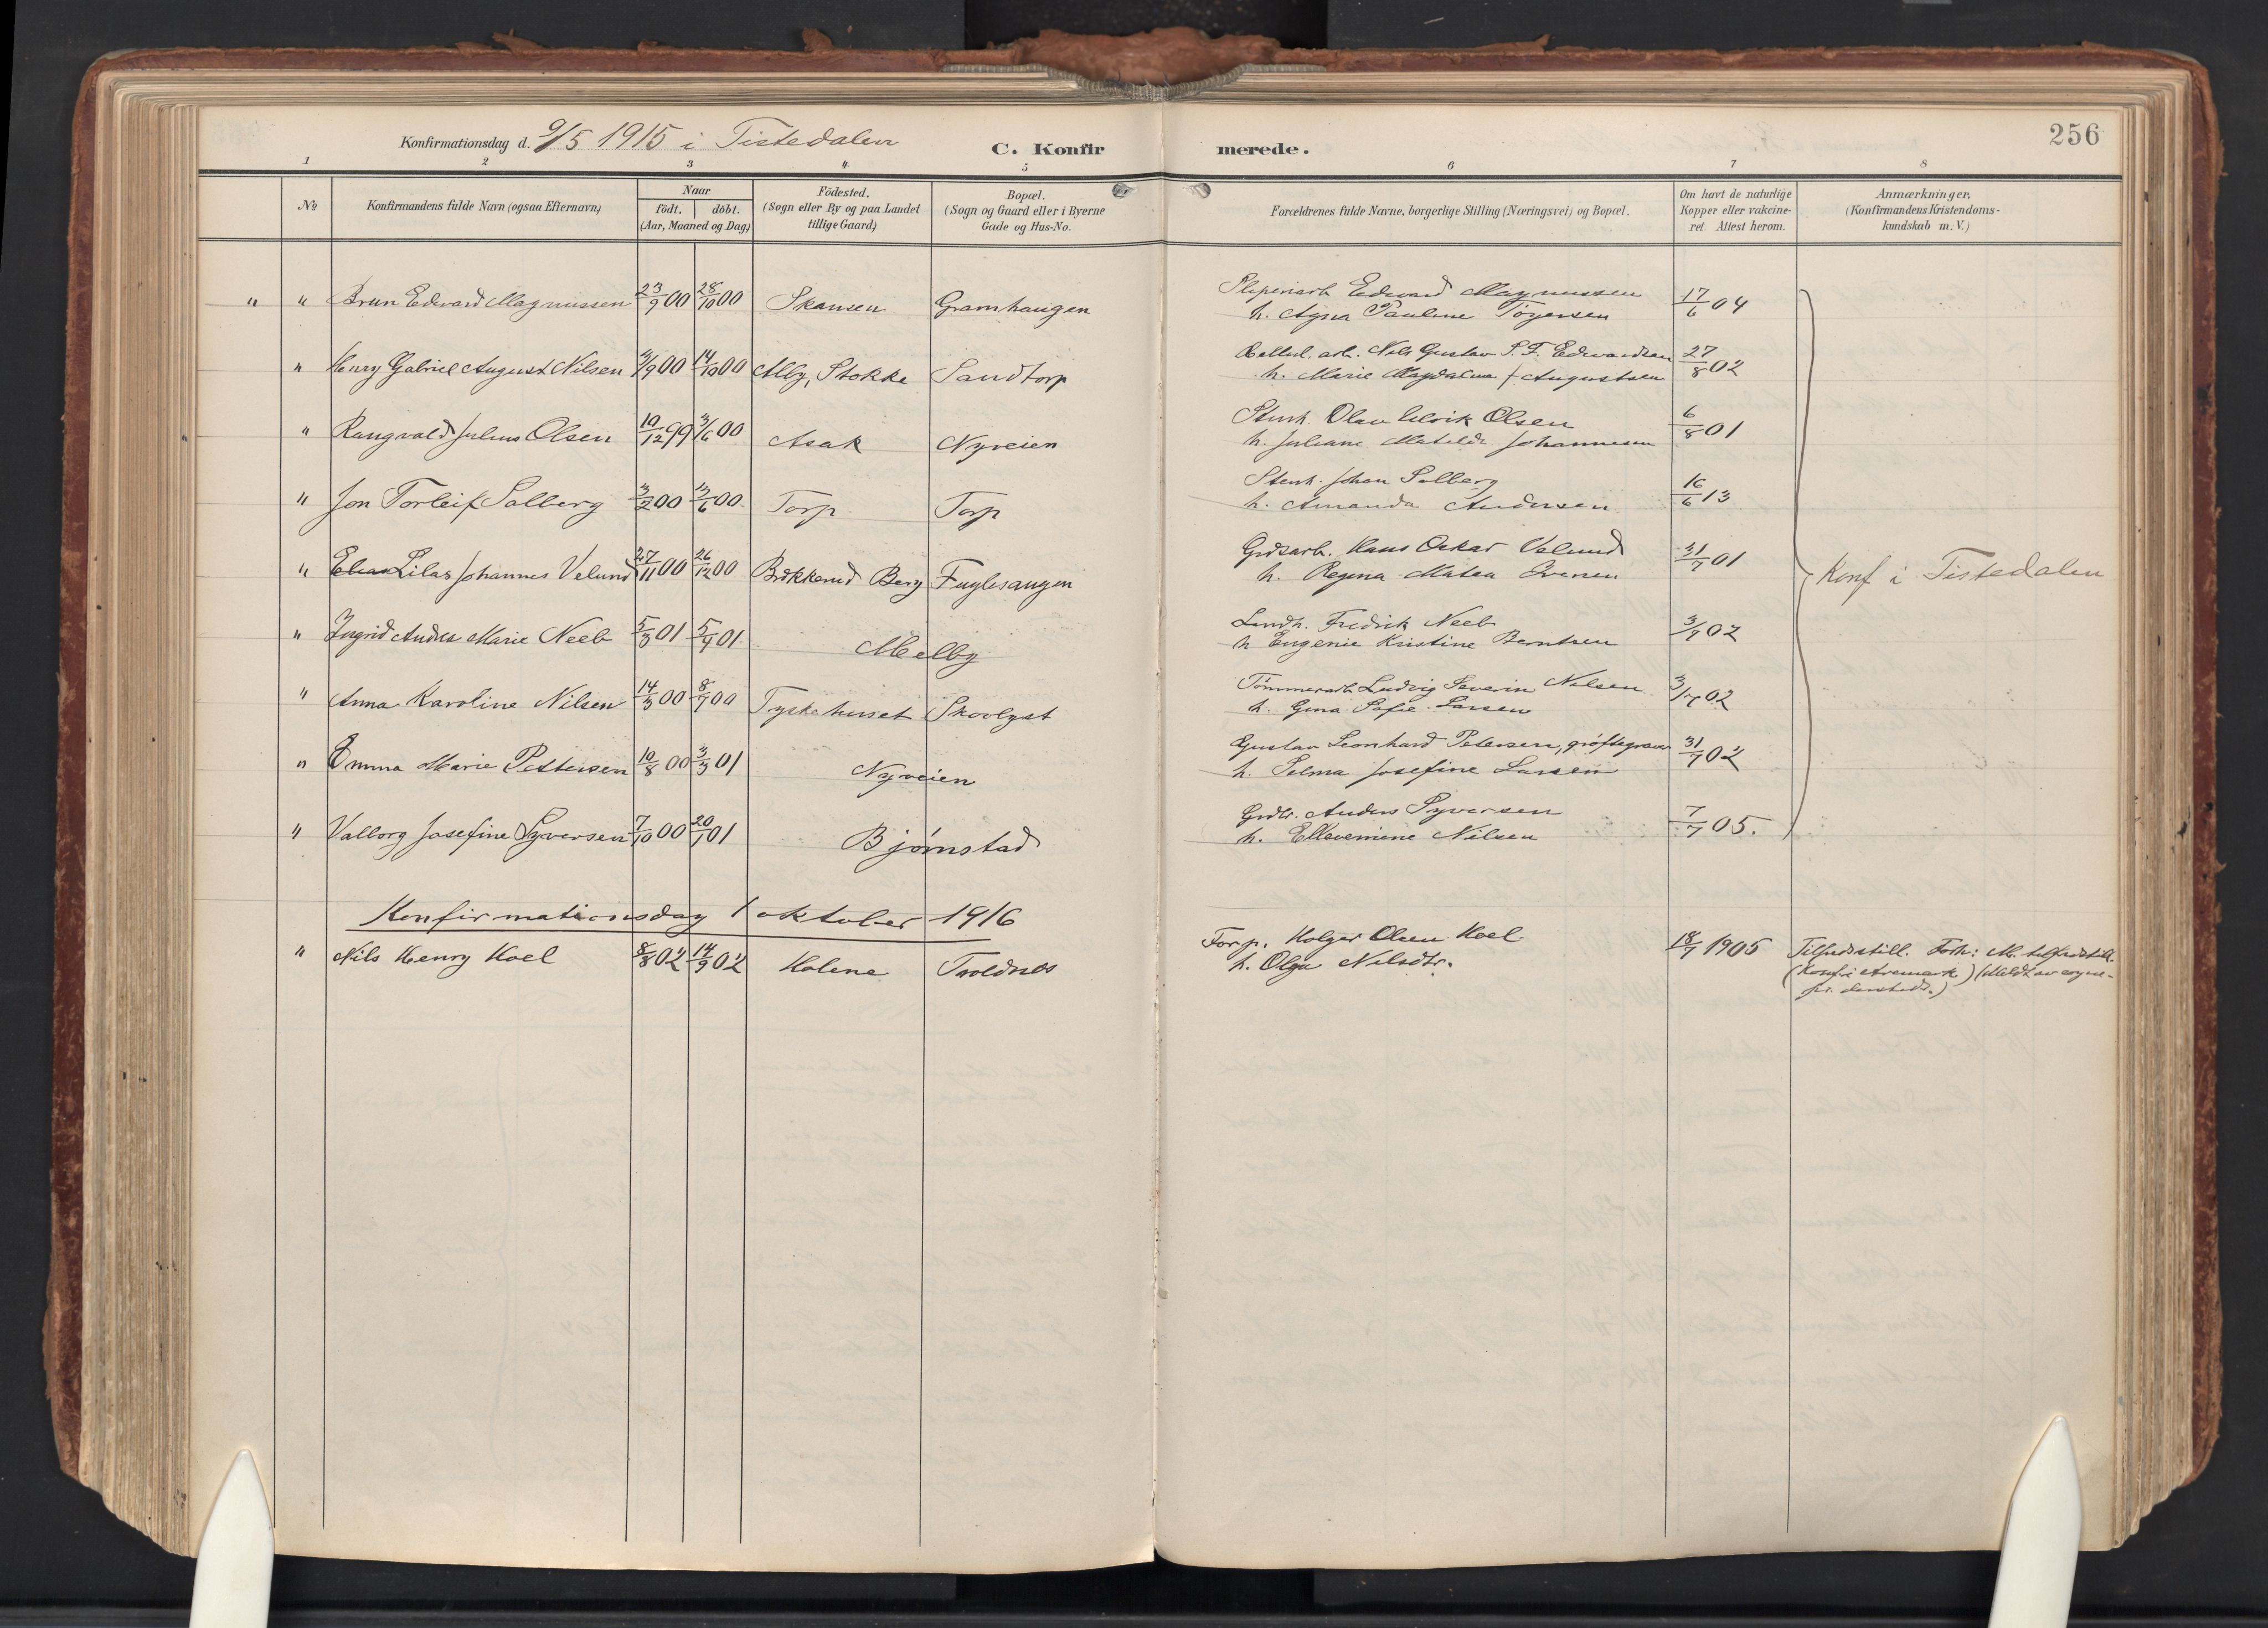 256
Konfirmationsdag d. 9/5 1915 i Tistedalen
C. Konfirmerede.
1 2 3 4 5 6 7 8
No
Konfirmandens fulde Navn (ogsaa Efternavn)
Naar
födt. | döbt.
(Aar, Maaned og Dag)
Födested.
(Sogn eller By og paa Landet
tillige Gaard)
Bopæl.
(Sogn og Gaard eller i Byerne
Gade og Hus-No.
Forældrenes fulde Navne, borgerlige Stilling (Næringsvei) og Bopæl.
Om havt de naturlige
Kopper eller vakcine-
ret. Attest herom.
Anmærkninger.
(Konfirmandens Kristendoms-
kundskab m. V.)
" " Brun Edvard Magnussen 23/9 00 28/10 00 Skansen Gramhaugen
Sliperiarb. Edvard Magnussen 17/6 04
h. Agna Pauline Torgersen
" Henry Gabriel August Nilsen 3/9 00 14/10 00 Alby, Stokke Sandtorp
Cellul. arb. Nils Gustav S. F. Edvardsen 27/8 02
h. Marie Magdalena f Augustsen
" Rangvald Julius Olsen 10/12 99 3/6 00 Asak Nyveien
Stenh. Olav Ulrik Olsen 6/8 01
h. Juliane Matilde Johannesen
" Jon Torleif Solberg 3/2 00 3/6 00 Torp Torp
Stenh. Johan Solberg 16/6 13
h. Amanda Andersen
" Lilas Johannes Velund 27/11 00 26/12 00 Brekkerud Berg Fuglesangen
Grdsarb. Hans Oskar Velund 31/7 01
h. Regina Matea Svensen
Konf i Tistedalen
" Ingrid Andrea Marie Neeb 5/3 01 5/4 01 Melby
Landh. Fredrik Neeb 3/7 02
h Eugenie Kristine Berntsen
" Anna Karoline Nilsen 14/3 00 8/7 00 Tyskehuset Skovlyst
Tömmerarb. Ludvig Severin Nilsen 3/7 02
h. Gina Sofie Larsen
" Emma Marie Pettersen 10/8 00 3/3 01 Nyveien
Gustav Leonhard Petersen, gröftegraver 31/7 02
h. Selma Josefine Larsen
" Valborg Josefine Syversen 7/10 00 20/1 01 Bjørnstad
Grdbr. Anders Syversen 7/7 05.
h. Elleveniene Nilsen
Konfirmationsdag 1 oktober 1916
" Nils Henry Hoel 8/8 02 14/9 02 Holene Troldnes
Forp. Holger Olsen Hoel 18/7 1905
h. Olga Nilsdtr.
Tilfredsstill. Forh: M. tilfredstill.
(Konf. i Aremark) (Meldt av sogne-
pr. dersteds.)